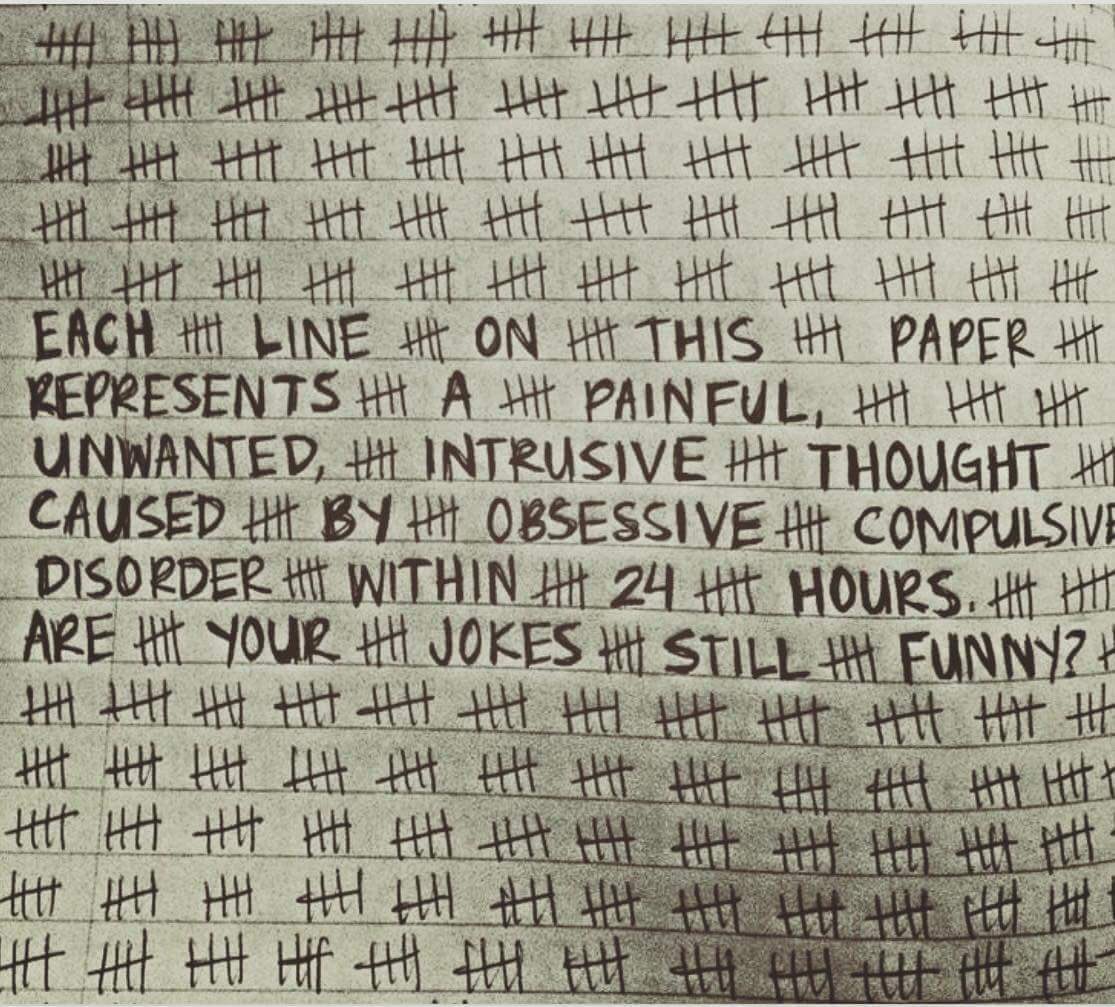 EACH LINE ON THIS PAPER
REPRESENTS A PAINFUL,
UNWANTED, INTRUSIVE THOUGHT
CAUSED BY OBSESSIVE COMPULSIVE
DISORDER WITHIN 24 HOURS.
ARE YOUR JOKES STILL FUNNY?